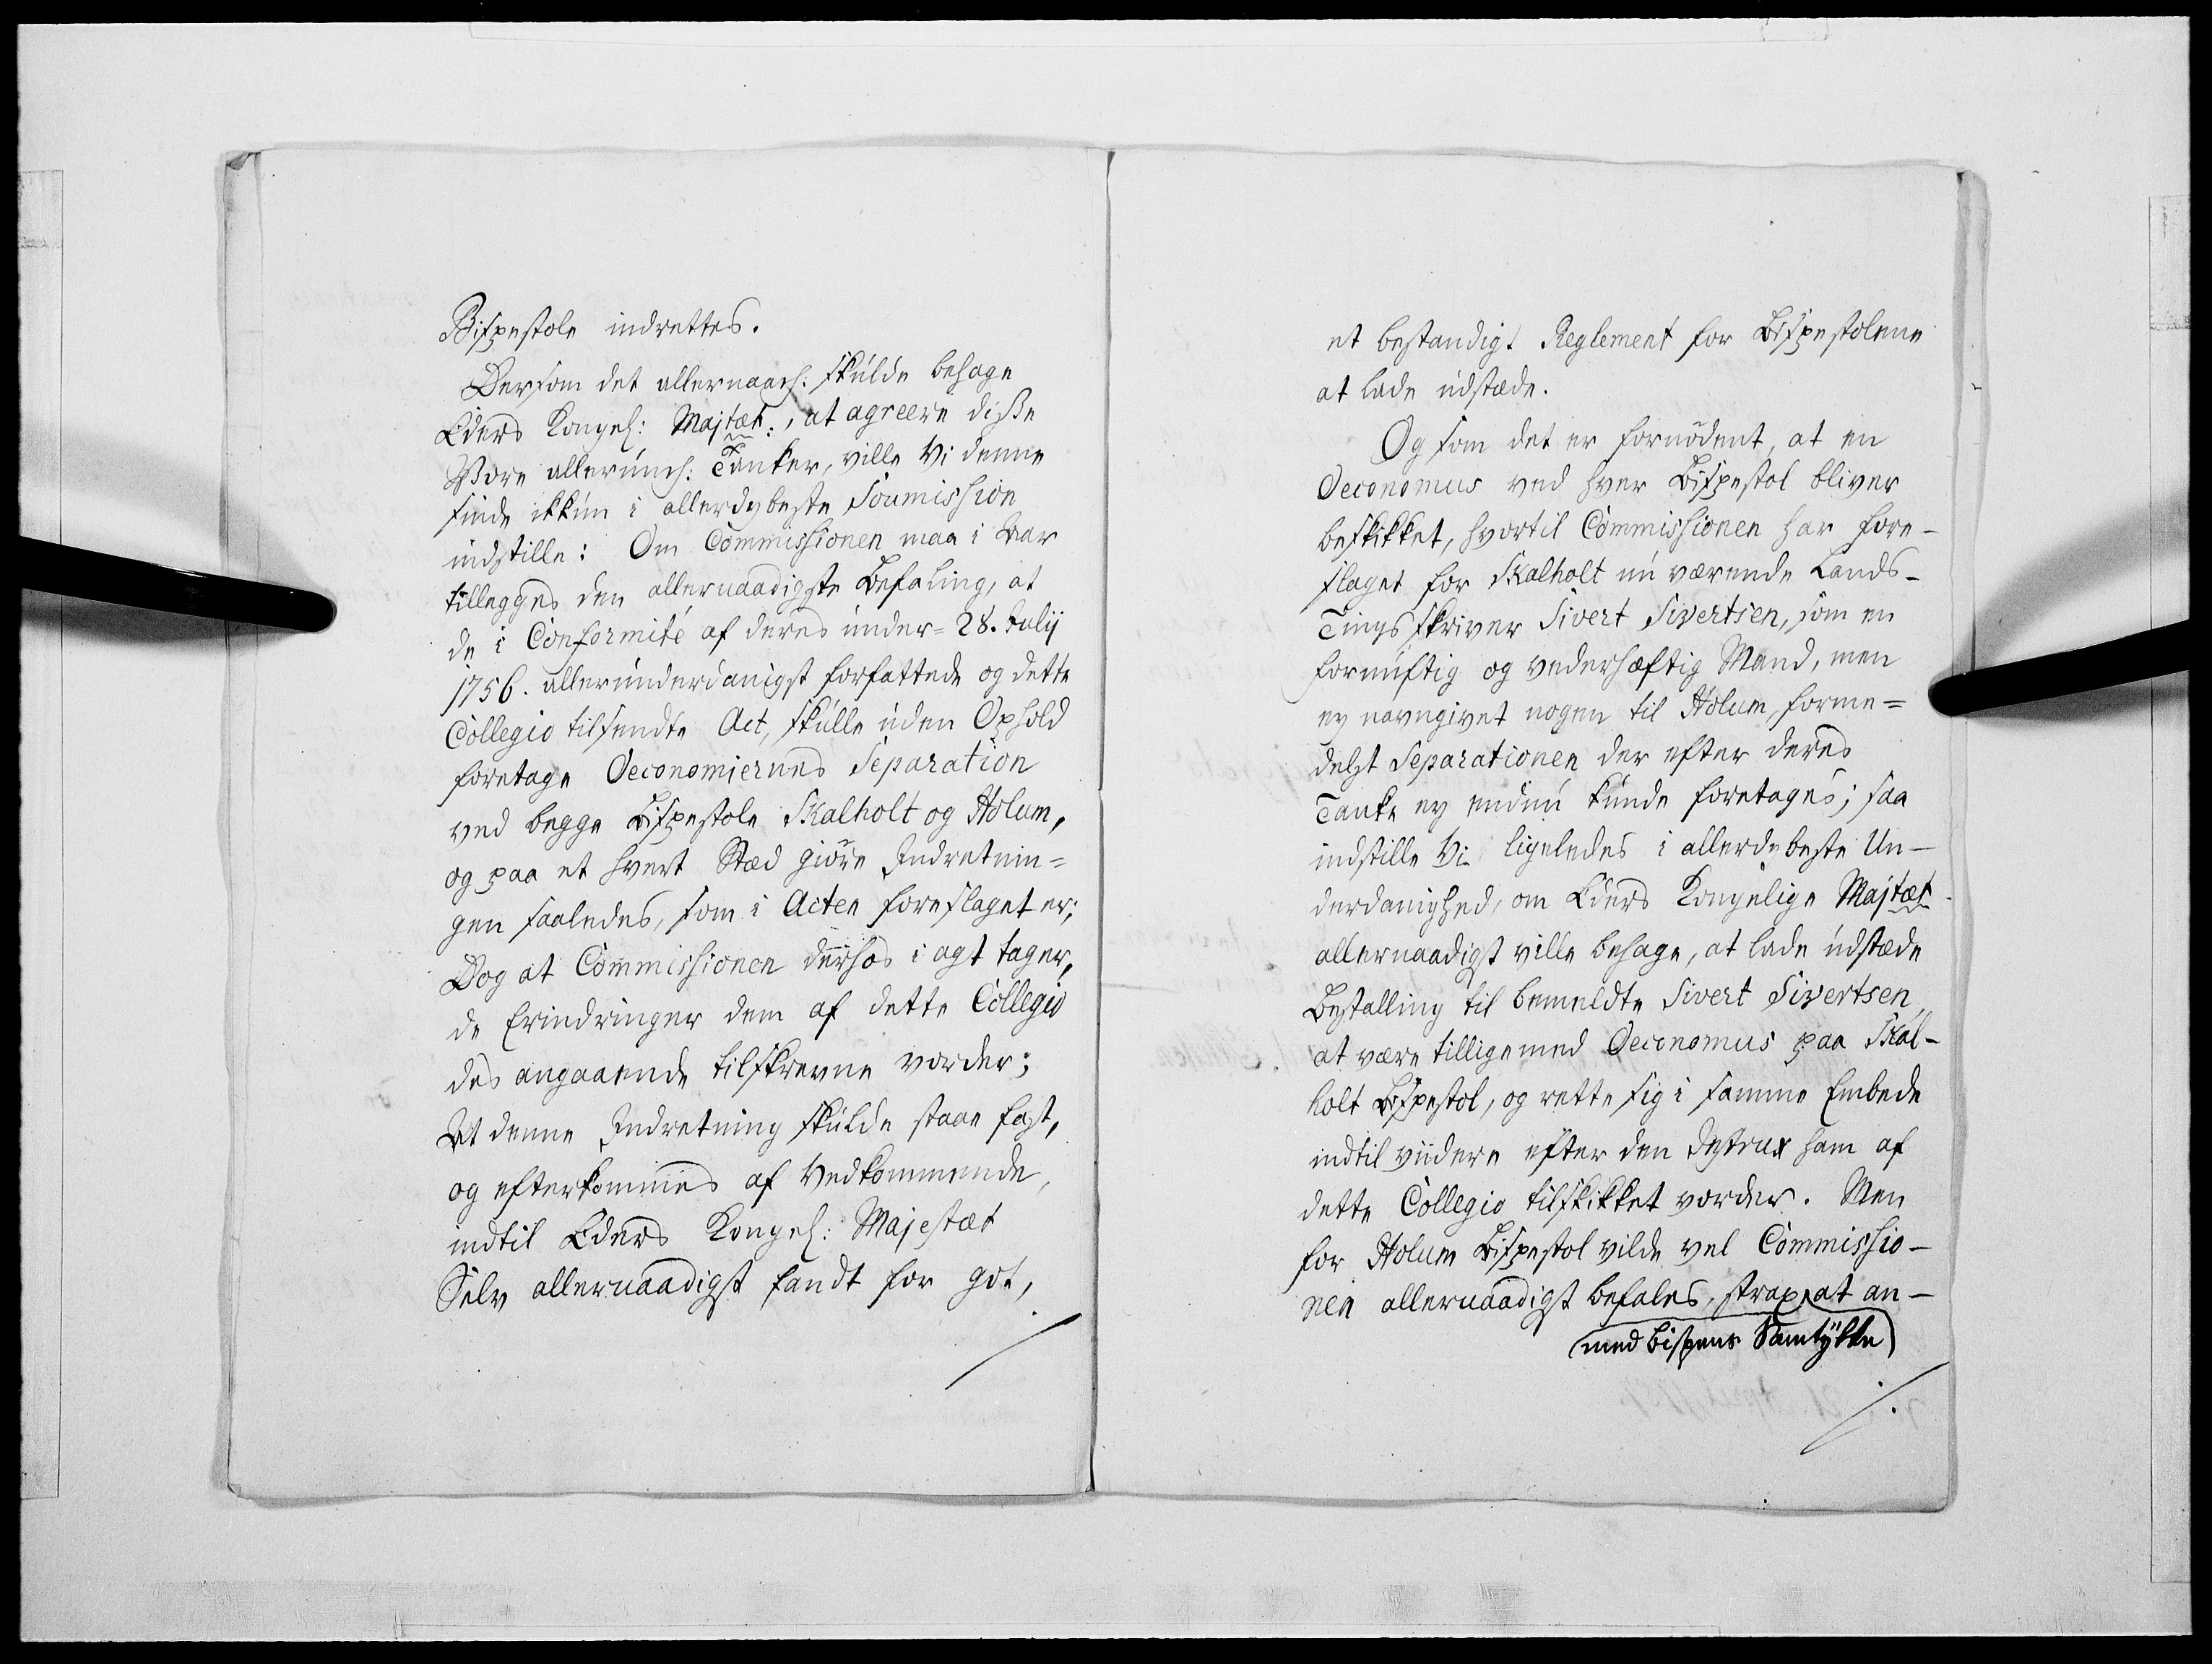 Bispestole indrettes.
Dersom det allernaad: skulde behage
Eders Kongel: Majtæt:, at agreere disse
Vore allerund: Tanker, ville Vi denne
sinde ikkun i allerdybeste Soumission
indstille: Om Commissionen maa i Aar
tillegges den allernaadigste Befaling, at
de i Conformité af deres under- 28. Julij
1756. allerunderdanigst forfattede og dette
Collegio tilsendte Act, skulle uden Ophold
foretage Oeconomiernes Separation
ved begge Bispestole Skalholt og Holum,
og paa et hvert Stæd giöre Indretnin=
gen saaledes, som i Acten foreslaget er;
Dog at Commissionen derhos i agt tager,
de Erindringer dem af dette Collegio
des angaaende tilskrevne vorder;
At denne Indretning skulde staae fast,
og efterkommes af Vedkommende,
indtil Eders Kongel: Majestæt
Selv allernaadigst fandt for got,
et bestandigt Reglement for Bispestolene
at lade udstæde.
Og som det er fornödent, at en
Oeconomus ved hver Bispestol bliver
beskikket, hvortil Commissionen har fore-
slaget for Skalholt nu værende Lands-
Tings skriver Sivert Sivertsen, som en
fornuftig og vederhæftig Mand, men
ey navngivet nogen til Holum, forme=
delst Separationen der efter deres
Tanke ey endnu kunde foretages; saa
indstille Vi ligeledes i allerdybeste Un-
derdanighed, om Eders Kongelige Majtæt
allernaadigst ville behage, at lade udstæde
Bestalling til bemeldte Sivert Sivertsen
at være tilligemed Oeconomus paa Skal-
holt Bispestol, og rette sig i samme Embede
indtil viidere efter den Jnstrux ham af
dette Collegio tilskikket vorder. Men
for Holum Bispestol vilde vel Commissio-
nen allernaadigst befales, strax at an-
(med Bispens Samtÿkke)